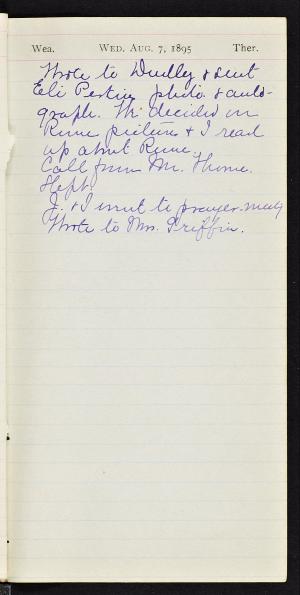 Wea. WED. AUG. 7, 1895 Ther.
Wrote to Dudley & sent
Eli Perkins photo. & auto-
graph. Mr. decided on
Rome pictures & I read
up about Rome.
Call from Mr. Thorne.
Slept.
F. & I went to prayer-meetg
Wrote to Mrs. Griffin.